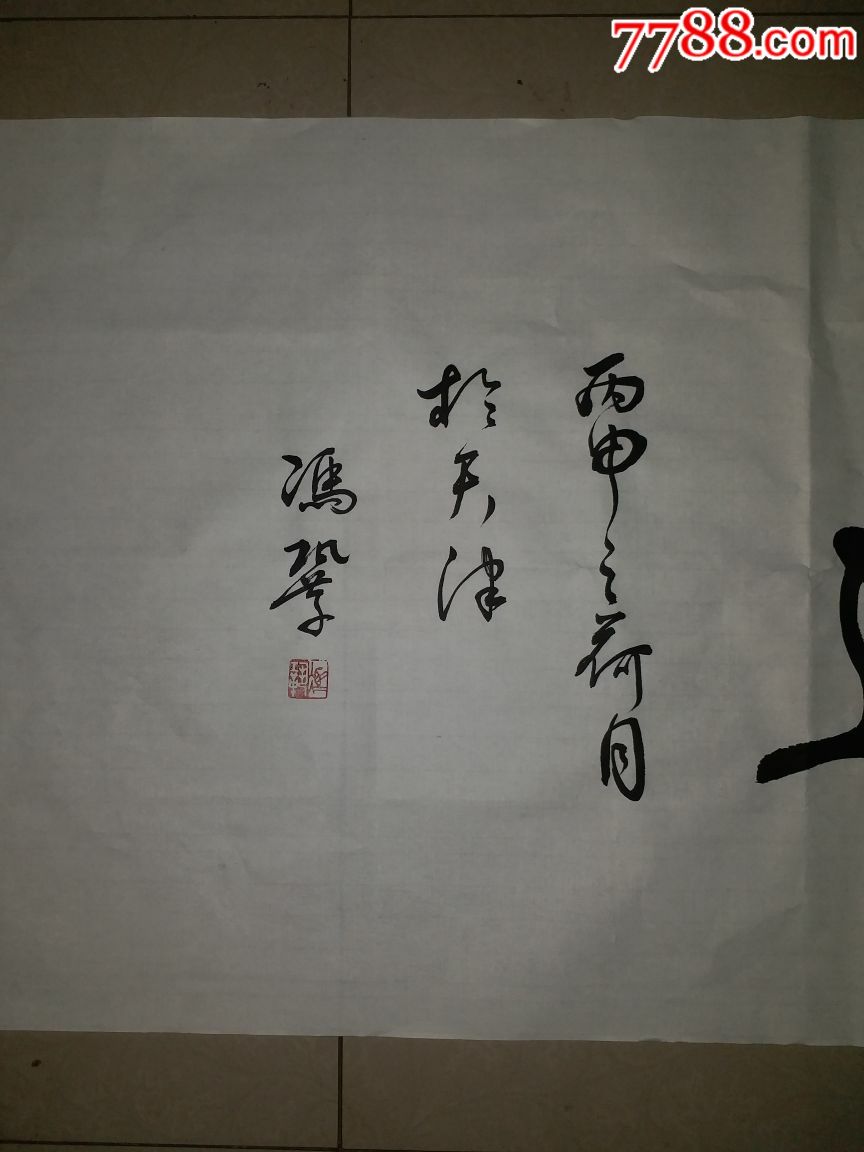 7788.com
丙申之荷月
於天津
馮鞏